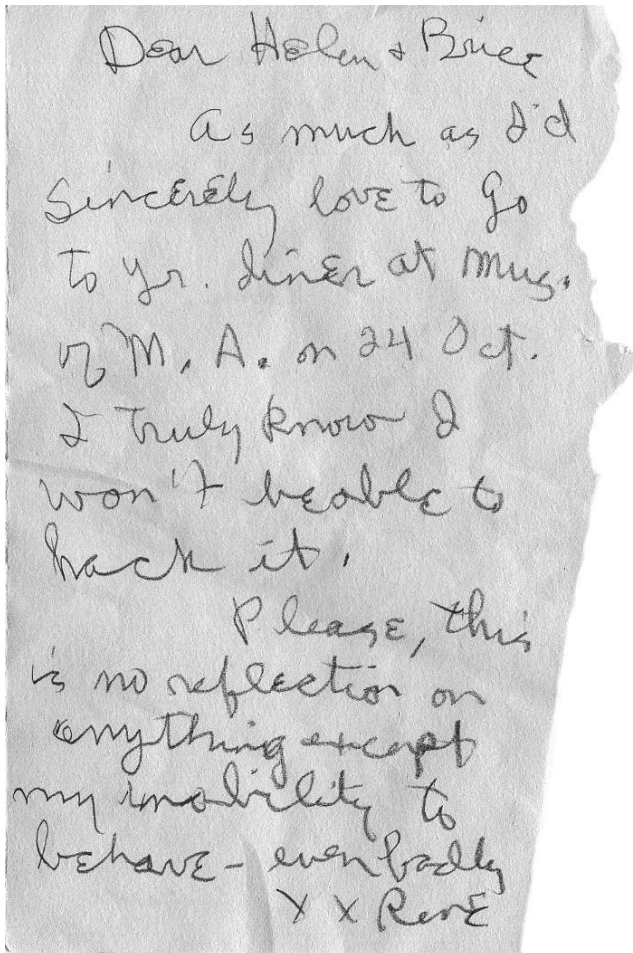 Dear Helen & Brice
As much as I'd
sincerely love to go
to yr. diner at Mus.
of M. A. on 24 Oct.
I truly know I
won't beable to
hack it.
Please, this
is no reflection on
anything except
my inability to
behave – even badly
X X René